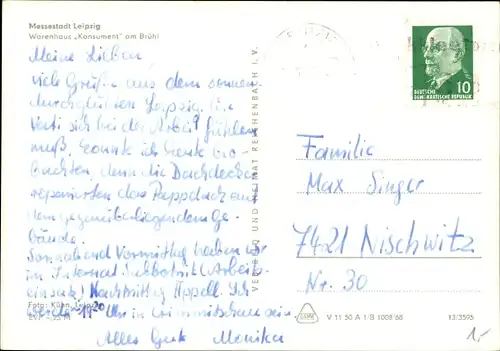 Messestadt Leipzig
Warenhaus „Konsument“ am Brühl
Meine Lieben,
viele Grüße aus dem sonnen-
durchglühten Leipzig.
sich bei der Arbeit fühlen
muß, konnte ich heute beo-
bachten, denn die Dachdecker
reparierten das Pappdach auf
dem gegenüberliegenden Ge-
bäude.
Sonnabend Vormittag haben wir
im Internat Subbotnik (Arbeits-
einsatz) Nachmittag Appell. Ich
werde 17²⁰ Uhr in Crimmitschau sein.
Alles Gute Monika
Foto: Kühn, Leipzig
VERLAG BILD UND HEIMAT REICHENBACH I. V.
DEUTSCHE
DEMOKRATISCHE REPUBLIK
10
Familie
Max Singer
7421 Nischwitz
Nr. 30
V 11 50 A 1/B 1008/68
13/3595
1,-